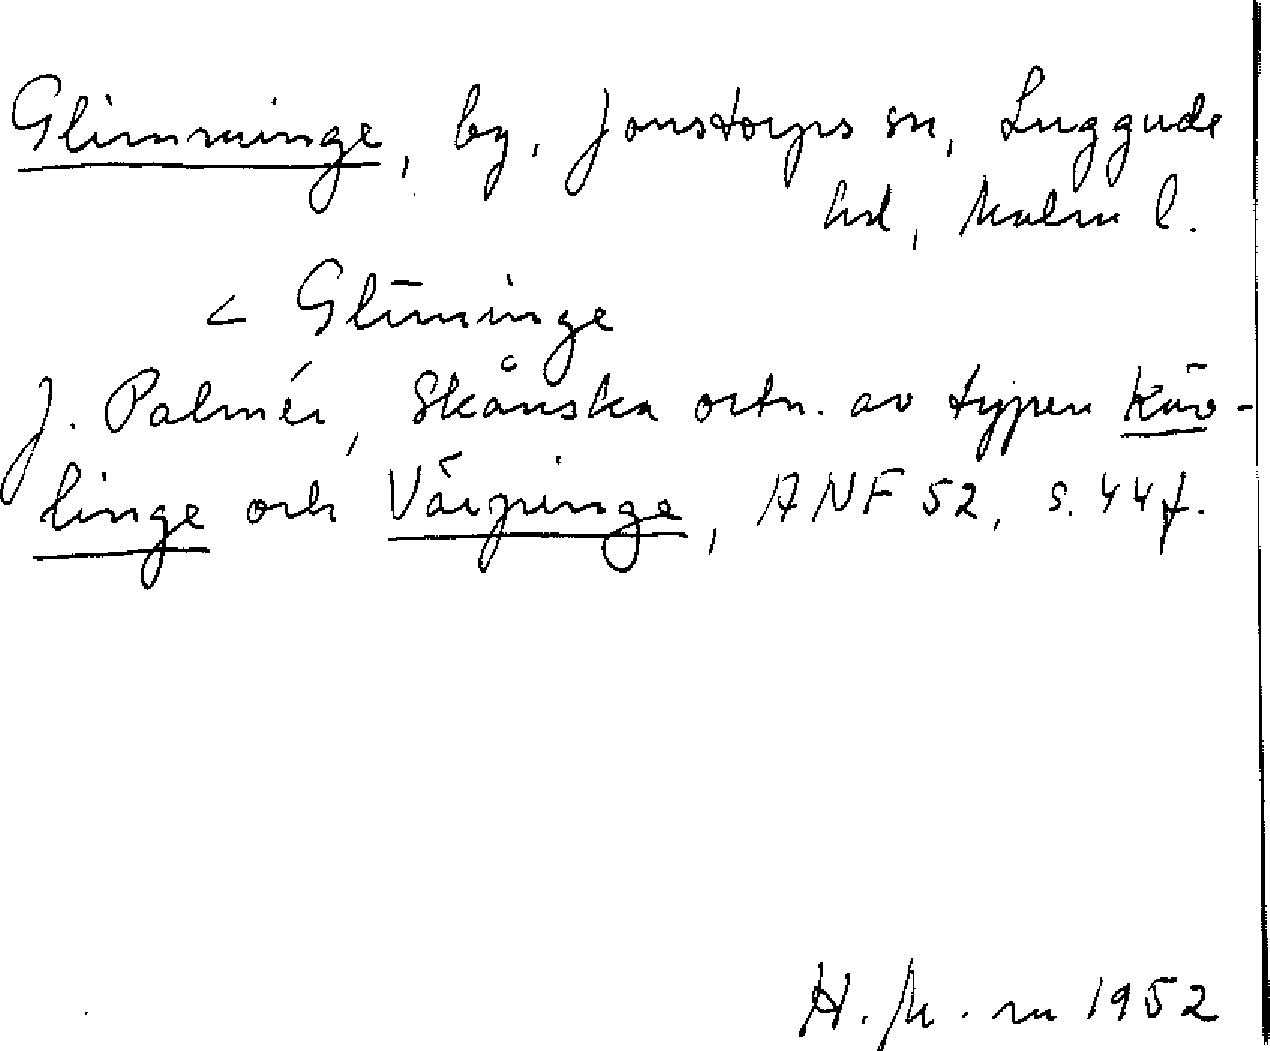 Glimminge, by, Jonstorps sn, Luggude
hd, Malm l.
< Glīminge
J. Palmér, Skånska ortn. av typen Käv-
linge och Värpinge, ANF 52, s. 44 f.
H. M. 1952